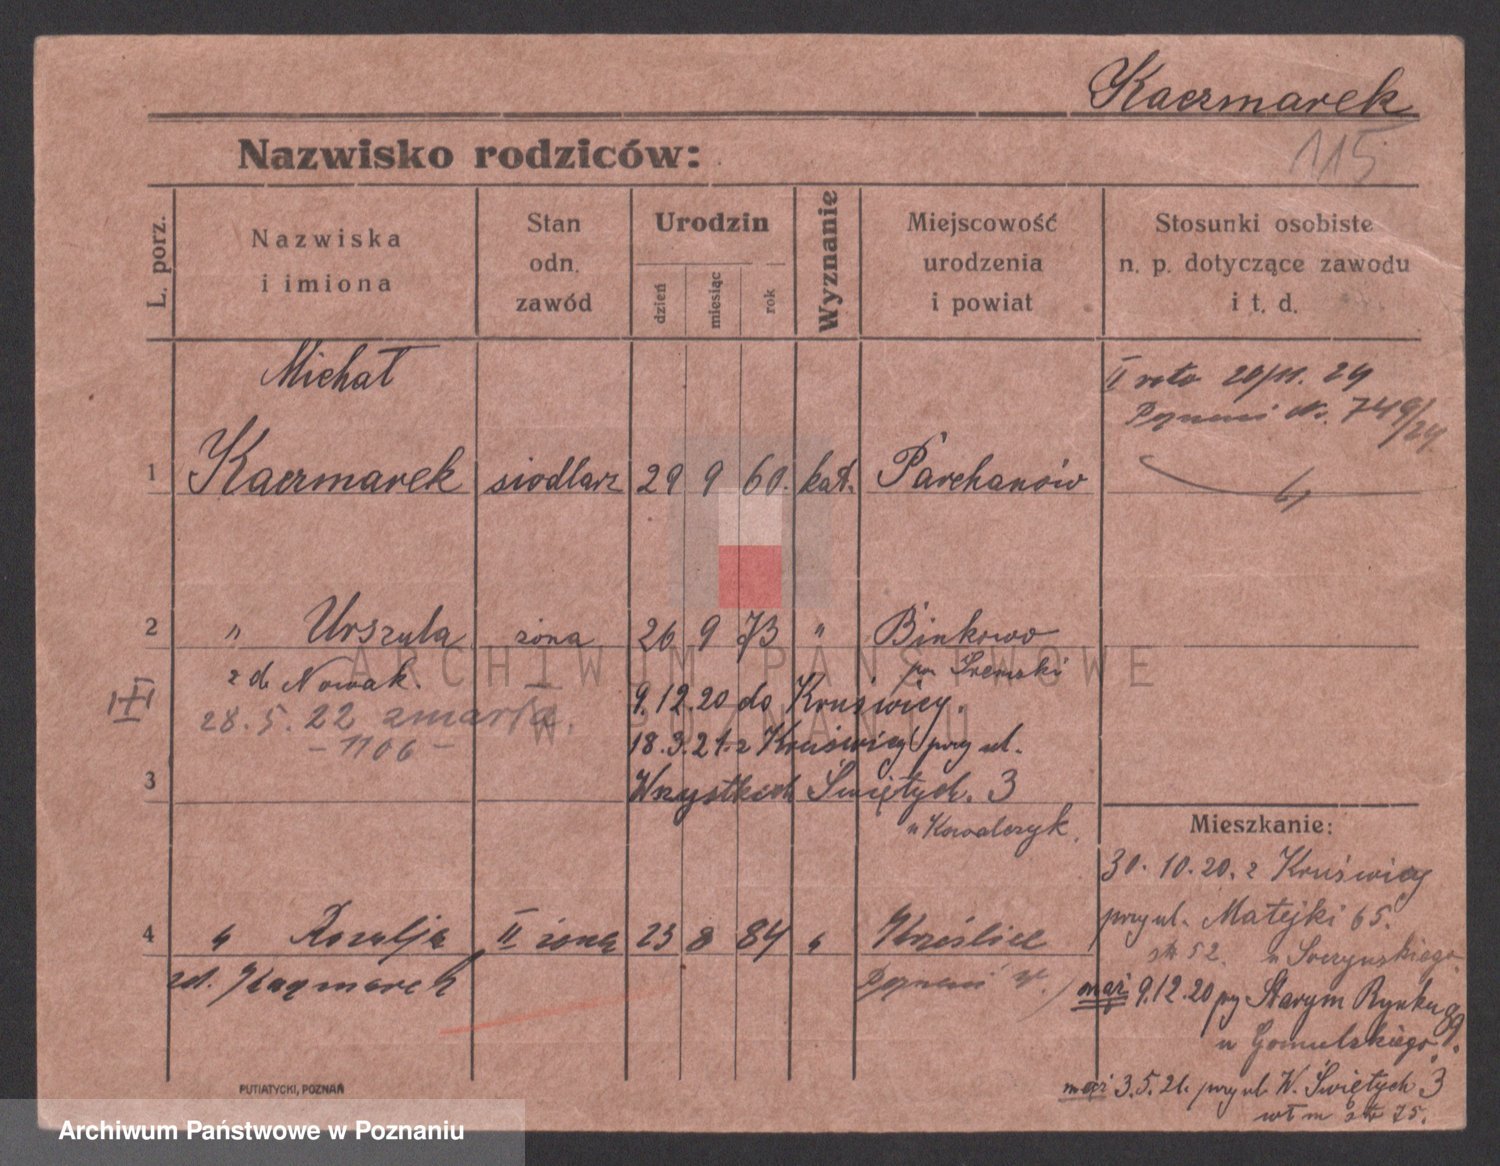 Kaczmarek
115
Nazwisko rodziców:
L. porz.
Nazwiska
i imiona
Stan
odn.
zawód
Urodzin
dzień
miesiąc
rok
Wyznanie
Miejscowość
urodzenia
i powiat
Stosunki osobiste
n. p. dotyczące zawodu
i t. d.
Michał
1 Kaczmarek siodlarz 29 9 60. kat. Parchanów
20/11. 24
Poznań Nr. 749/24
2 " Urszula żona 26 9 73 " Binkowo
z d. Nowak.
pow. Śremski
28. 5. 22 zmarła.
- 1106 -
9.12.20 do Kruświcy.
18.3.21. z Kruświcy przy ul.
3 Wszystkich Świętych. 3
u Kowalczyk.
4 " Rozalja II żona 23 8 84 "
zd. Kaczmarek
Poznań
Mieszkanie:
30. 10. 20. z Kruświcy
przy ul. Matejki 65.
52. u
mąż 9.12.20 przy Starym Rynku
u
mąż 3.5.21. przy ul. W. Świętych 3
75.
PUTIATYCKI, POZNAŃ
ARCHIWUM PAŃSTWOWE
W POZNANIU
Archiwum Państwowe w Poznaniu